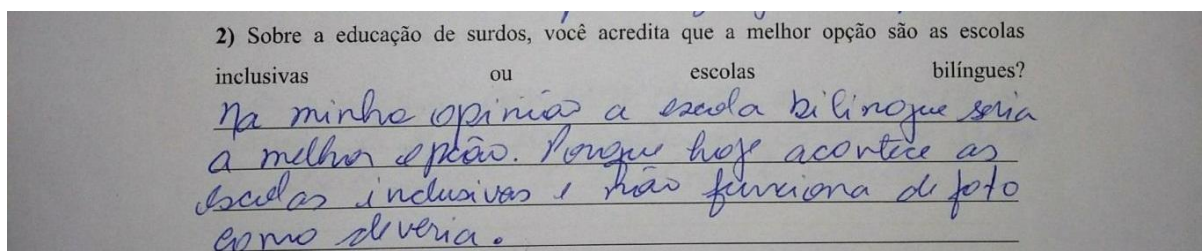 2) Sobre a educação de surdos, você acredita que a melhor opção são as escolas
inclusivas ou escolas bilíngues?
Na minha opinião a escola bilingue seria
a melhor opção. Porque hoje acontece as
escolas inclusivas e não funciona de fato
como deveria.